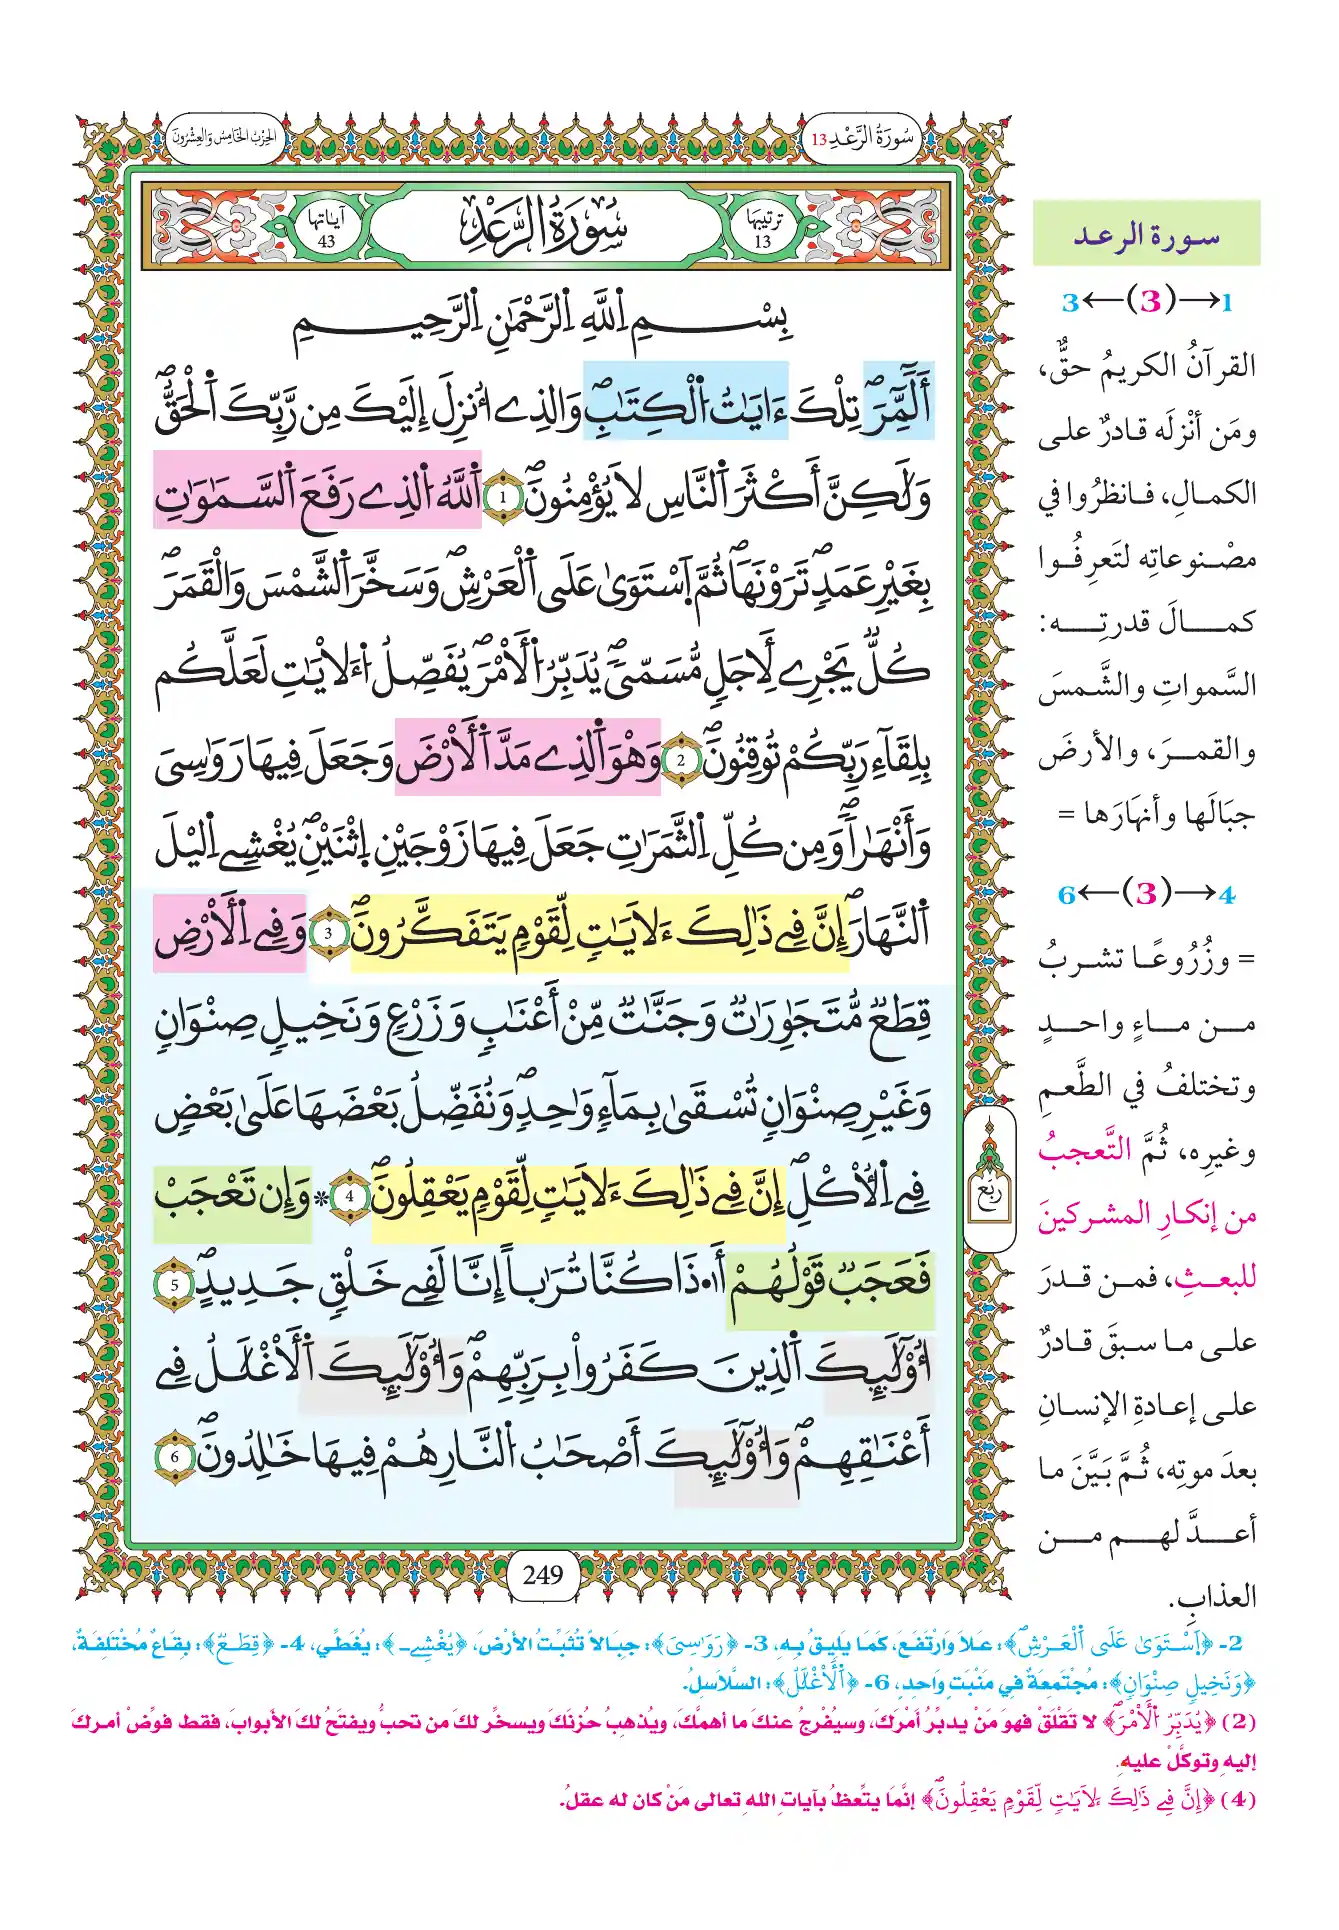 سُورَةُ الرَّعْدِ 13
الحِزْبُ الخَامِسُ وَالعِشْرُونَ
ترتيبها 13
سُورَةُ الرَّعْدِ
آياتها 43
بِسْمِ اِ۬للَّهِ اِ۬لرَّحْمَٰنِ اِ۬لرَّحِيمِ
أَلَٓمِّٓر۪ۖ تِلْكَ ءَايَٰتُ اُ۬لْكِتَٰبِۖ وَالذِےٓ أُنزِلَ إِلَيْكَ مِن رَّبِّكَ اَ۬لْحَقُّۖ
وَلَٰكِنَّ أَكْثَرَ اَ۬لنَّاسِ لَا يُؤْمِنُونَۖ 1 اَ۬للَّهُ اُ۬لذِے رَفَعَ اَ۬لسَّمَٰوَٰتِ
بِغَيْرِ عَمَدٖ تَرَوْنَهَاۖ ثُمَّ اَ۪سْتَوَىٰ عَلَى اَ۬لْعَرْشِۖ وَسَخَّرَ اَ۬لشَّمْسَ وَالْقَمَرَۖ
كُلّٞ يَجْرِے لِأَجَلٖ مُّسَمّيٗۖ يُدَبِّرُ اُ۬لْأَمْرَۖ يُفَصِّلُ اُ۬لْأٓيَٰتِ لَعَلَّكُم
بِلِقَآءِ رَبِّكُمْ تُوقِنُونَۖ 2 وَهْوَ اَ۬لذِے مَدَّ اَ۬لْأَرْضَ وَجَعَلَ فِيهَا رَوَٰسِيَ
وَأَنْهَٰراٗۖ وَمِن كُلِّ اِ۬لثَّمَرَٰتِ جَعَلَ فِيهَا زَوْجَيْنِ اِ۪ثْنَيْنِۖ يُغْشِے اِ۬ليْلَ
اَ۬لنَّهَارَۖ إِنَّ فِے ذَٰلِكَ ءَلَايَٰتٖ لِّقَوْمٖ يَتَفَكَّرُونَۖ 3 وَفِے اِ۬لْأَرْضِ
قِطَعٞ مُّتَجَٰوِرَٰتٞ وَجَنَّٰتٞ مِّنْ أَعْنَٰبٖ وَزَرْعٖ وَنَخِيلٖ صِنْوَانٖ
وَغَيْرِ صِنْوَانٖ تُسْقَىٰ بِمَآءٖ وَٰحِدٖۖ وَنُفَضِّلُ بَعْضَهَا عَلَىٰ بَعْضٖ
فِے اِ۬لْأُكْلِۖ إِنَّ فِے ذَٰلِكَ ءَلَايَٰتٖ لِّقَوْمٖ يَعْقِلُونَۖ 4 * وَإِن تَعْجَبْ
فَعَجَبٞ قَوْلُهُمْ أَ.ذَا كُنَّا تُرَٰباً إِنَّا لَفِے خَلْقٖ جَدِيدٍۖ 5
اُ۟وْلَٰٓئِكَ اَ۬لذِينَ كَفَرُواْ بِرَبِّهِمْۖ وَأُوْلَٰٓئِكَ اَ۬لْأَغْلَٰلُ فِےٓ
أَعْنَٰقِهِمْۖ وَأُوْلَٰٓئِكَ أَصْحَٰبُ اُ۬لنَّارِ هُمْ فِيهَا خَٰلِدُونَۖ 6
ربع
249
سورة الرعد
1→(3)←3
القرآنُ الكريمُ حقٌّ،
ومَن أنْزلَه قادرٌ على
الكمالِ، فانظرُوا في
مصْنوعاتِه لتَعرِفُوا
كمالَ قدرتِه:
السَّمواتِ والشَّمسَ
والقمرَ، والأرضَ
جبَالَها وأنهَارَها =
4→(3)←6
= وزُرُوعًا تشربُ
من ماءٍ واحدٍ
وتختلفُ في الطَّعمِ
وغيرِه، ثُمَّ التَّعجبُ
من إنكارِ المشركينَ
للبعثِ، فمن قدرَ
على ما سبقَ قادرٌ
على إعادةِ الإنسانِ
بعدَ موتِه، ثُمَّ بَيَّنَ ما
أعدَّ لهم من
العذابِ.
2- ﴿اَ۪سْتَوَىٰ عَلَى اَ۬لْعَرْشِۖ﴾: عَلاَ وَارْتَفَعَ، كَمَا يَلِيقُ بِهِ، 3- ﴿رَوَٰسِيَ﴾: جِبَالاً تُثَبِّتُ الأَرْضَ، ﴿يُغْشِے﴾: يُغَطِّي، 4- ﴿قِطَعٞ﴾: بِقَاعٌ مُخْتَلِفَةٌ،
﴿وَنَخِيلٖ صِنْوَانٖ﴾: مُجْتَمِعَةٌ فِي مَنْبَتٍ وَاحِدٍ، 6- ﴿اَ۬لْأَغْلَٰلُ﴾: السَّلاَسِلُ.
(2) ﴿يُدَبِّرُ اُ۬لْأَمْرَۖ﴾ لا تَقْلَقْ فهوَ مَنْ يدبِّرُ أمْرَكَ، وسيُفْرجُ عنكَ ما أهمكَ، ويُذهبُ حُزنَكَ ويسخِّر لكَ من تحبُّ ويفتَحُ لكَ الأبوابَ، فقط فوِّضْ أمركَ
إليهِ وتوكَّلْ عليهِ.
(4) ﴿إِنَّ فِے ذَٰلِكَ ءَلَايَٰتٖ لِّقَوْمٖ يَعْقِلُونَۖ﴾ إنَّمَا يتَّعظُ بآياتِ اللهِ تعالى مَنْ كان له عقلُ.